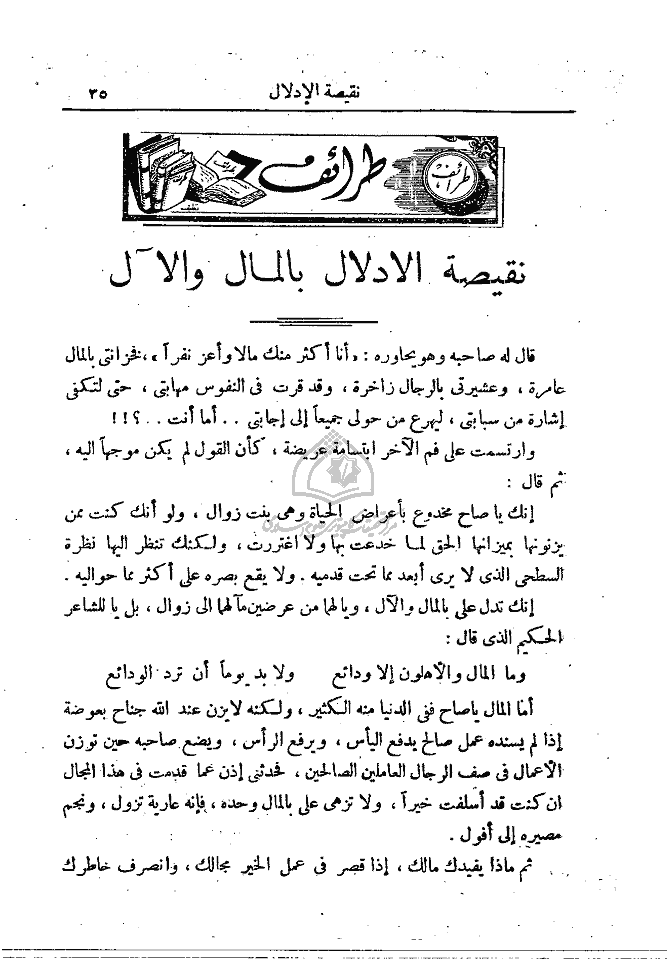 نقيصة الإدلال
٣٥
طرائف
طرائف
نقيصة الادلال بالمال والآل
قال له صاحبه وهو يحاوره : «أنا أكثر منك مالا وأعز نفراً» ، فخزانتى بالمال
عامرة ، وعشيرتى بالرجال زاخرة ، وقد قرت فى النفوس مهابتى ، حتى لتكفى
إشارة من سبابتى ، ليهرع من حولى جميعاً إلى إجابتى . . أما أنت . . ؟ ! !
وارتسمت على فم الآخر ابتسامة عريضة ، كأن القول لم يكن موجهاً اليه ،
ثم قال :
إنك يا صاح مخدوع بأعراض الحياة وهى بنت زوال ، ولو أنك كنت ممن
يزنونها بميزانها الحق لما خدعت بها ولا اغتررت ، ولكنك تنظر اليها نظرة
السطحى الذى لا يرى أبعد مما تحت قدميه . ولا يقع بصره على أكثر مما حواليه .
إنك تدل على بالمال والآل ، ويالهما من عرضين مآلهما الى زوال ، بل يا للشاعر
الحكيم الذى قال :
وما المال والأهلون إلا ودائع ولا بد يوماً أن ترد الودائع
أما المال ياصاح ففى الدنيا منه الكثير ، ولكنه لا يزن عند الله جناح بعوضة
إذا لم يسنده عمل صالح يدفع اليأس ، ويرفع الرأس ، ويضع صاحبه حين توزن
الأعمال فى صف الرجال العاملين الصالحين ، فحدثنى إذن عما قدمت فى هذا المجال
ان كنت قد أسلفت خيراً ، ولا تزهى على بالمال وحده ، فإنه عارية تزول ، ونجم
مصيره إلى أفول .
ثم ماذا يفيدك مالك ، إذا قصر فى عمل الخير مجالك ، وانصرف خاطرك